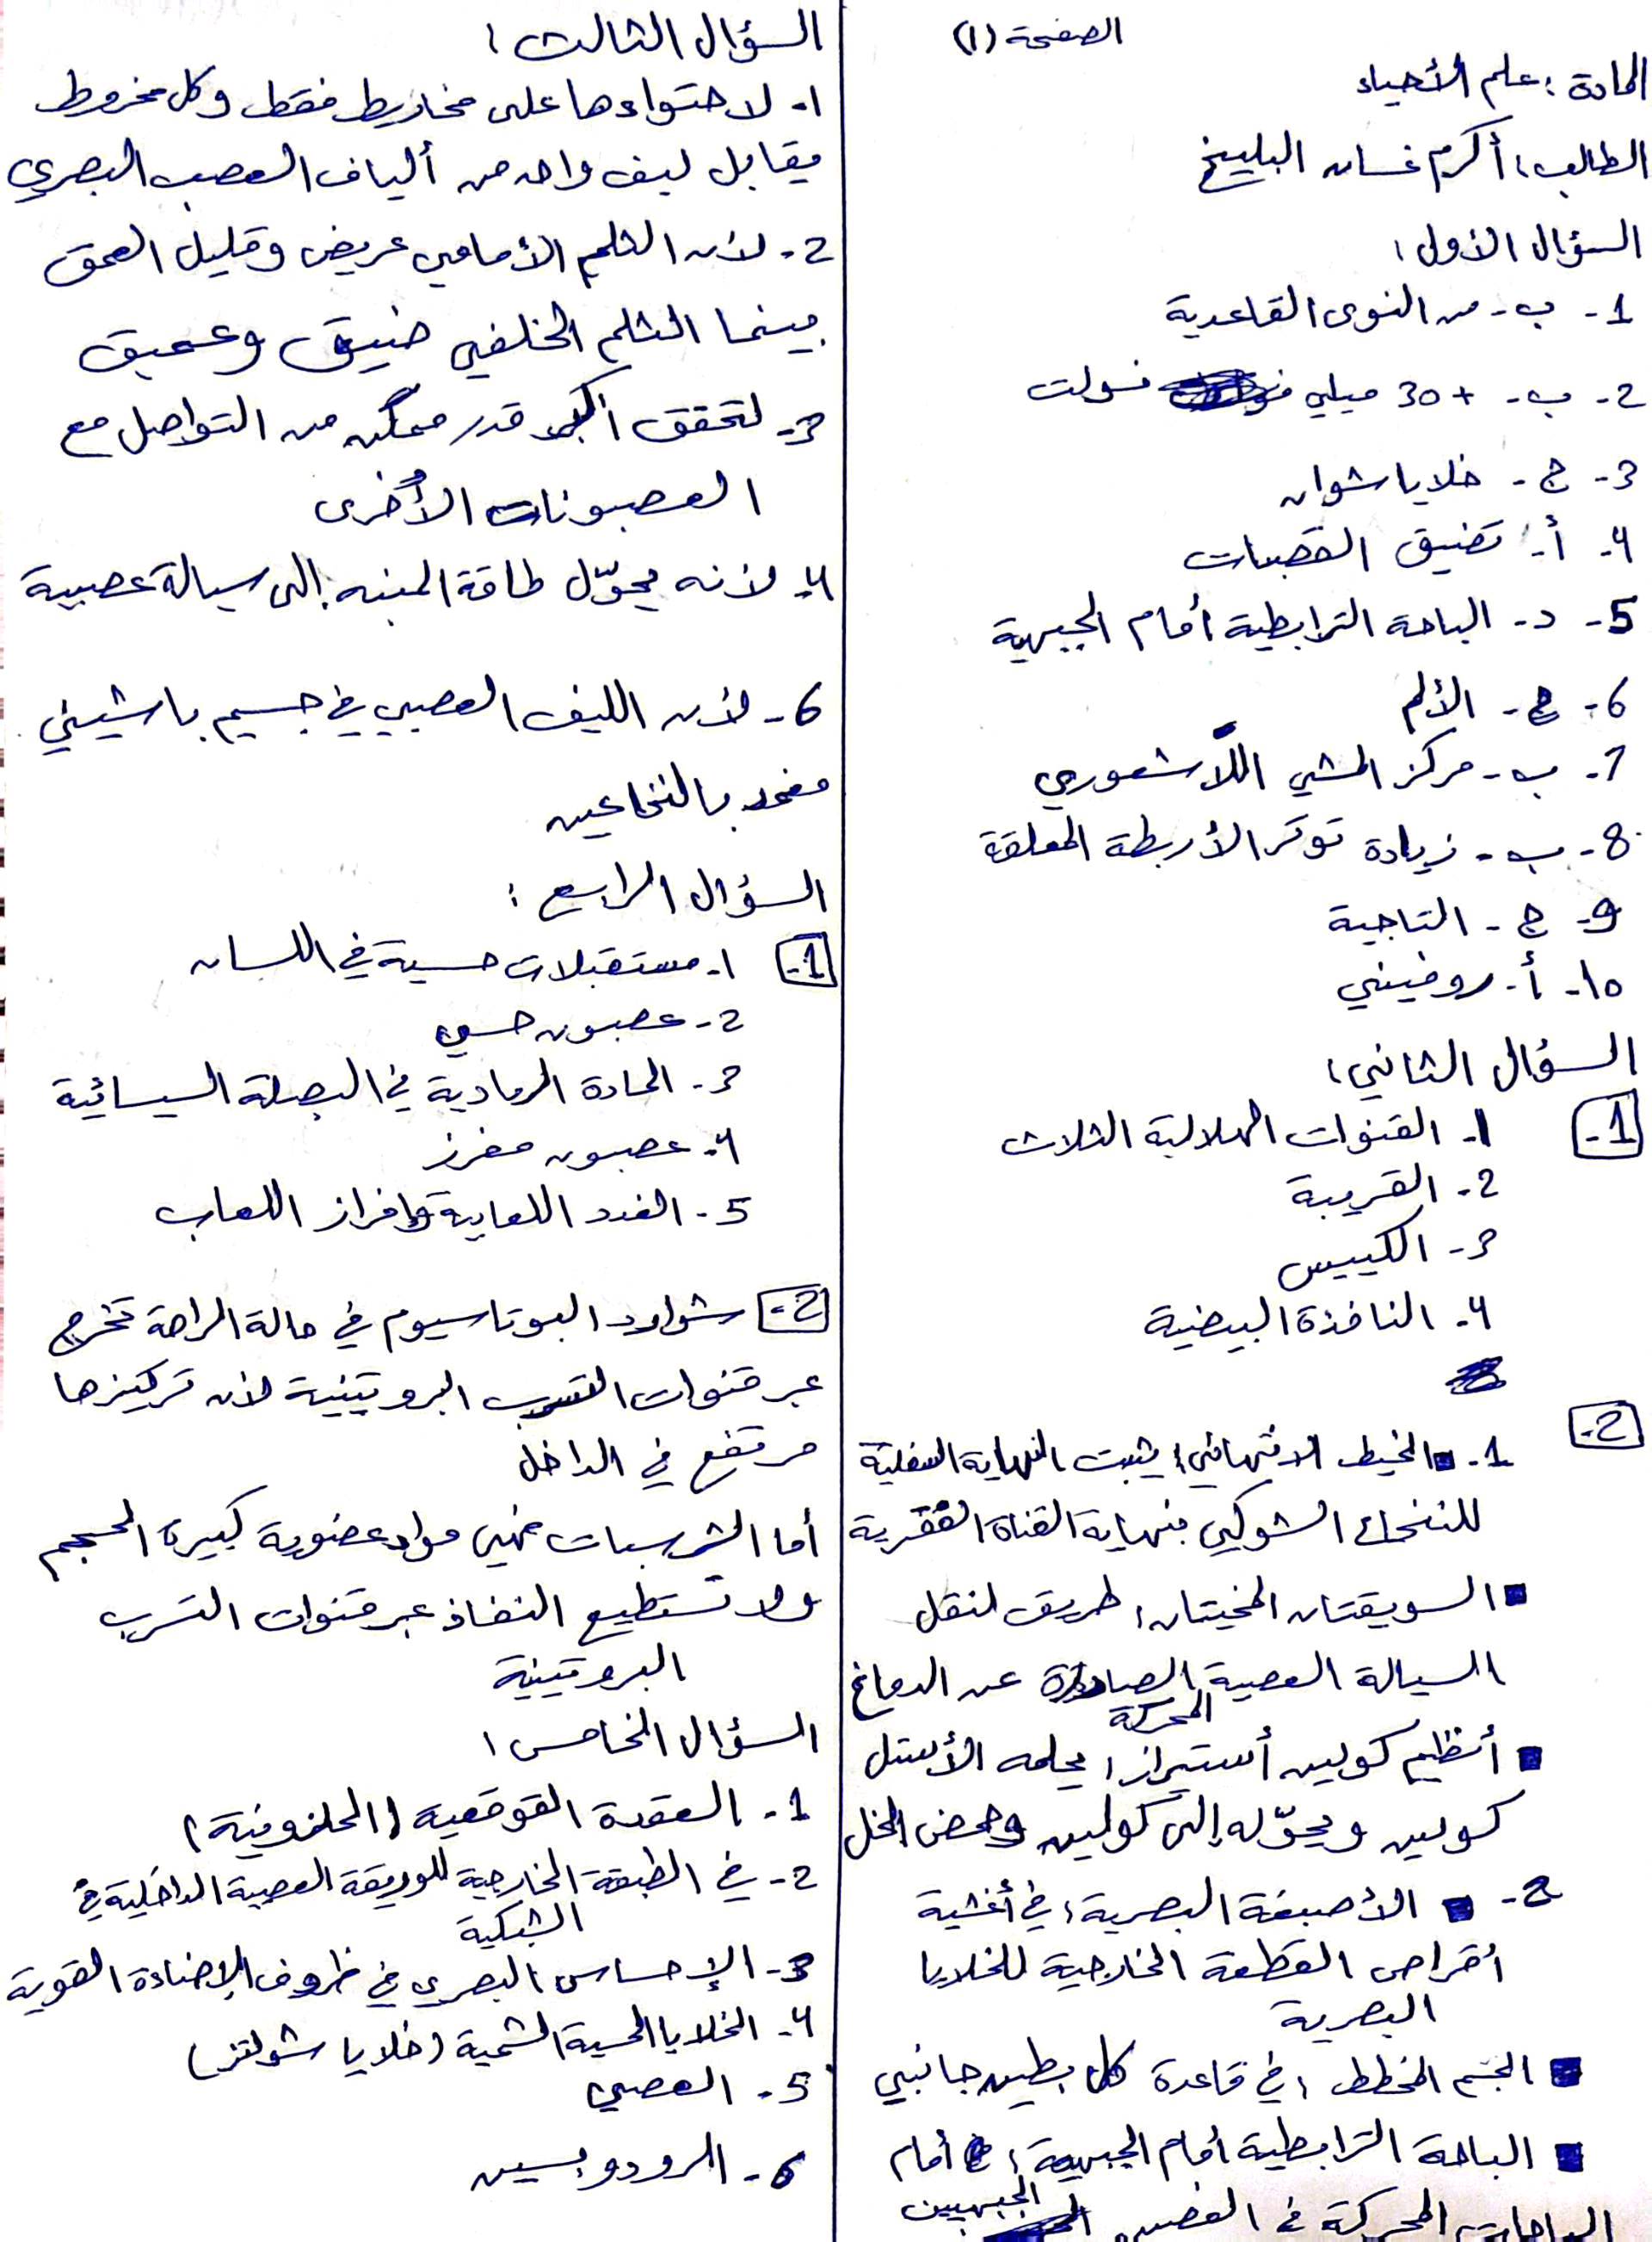 الصفحة (١)
المادة: علم الأحياء
الطالب: أكرم غسان البليخ
السؤال الأول:
1- ب- من النوى القاعدية
2- ب- +30 ميلي فولت
3- ج- خلايا شوان
4- أ- تضيق القصبات
5- د- الباحة الترابطية أمام الجبهية
6- ج- الألم
7- ب- مركز المشي اللاشعوري
8- ب- زيادة توتر الأربطة المعلقة
9- ج- التاجية
10- أ- روفيني
السؤال الثاني:
1- 1- القنوات الهلالية الثلاث
2- القريبة
3- الكييس
4- النافذة البيضية
2-
1- الخيط الانتهائي: يثبت النهاية السفلية
للنخاع الشوكي بنهاية القناة الفقرية
السويقتان المخيتان: طريق لنقل
السيالة العصبية المحركة الصادرة عن الدماغ
أنظيم كولين أستيراز: يحلمه الأستيل
كولين ويحوّله إلى كولين وحمض الخل
2- الأصبغة البصرية: في أغشية
أقراص القطعة الخارجية للخلايا
البصرية
الجسم المخطط: في قاعدة كل بطين جانبي
الباحة الترابطية أمام الجبهية: أمام
الباحات المحركة في الفصين الجبهيين
السؤال الثالث:
1- لاحتواءها على مخاريط فقط وكل مخروط
يقابل ليف واحد من ألياف العصب البصري
2- لأن الثلم الأمامي عريض وقليل العمق
بينما الثلم الخلفي ضيق وعميق
3- لتحقق أكبر قدر ممكن من التواصل مع
العصبونات الأخرى
4- لأنه يحوّل طاقة المنبه إلى سيالة عصبية
6- لأن الليف العصبي في جسيم باشيني
مغمد بالنخاعين
السؤال الرابع:
1- 1- مستقبلات حسية في اللسان
2- عصبون حسي
3- المادة الرمادية في البصلة السيسائية
4- عصبون مفرز
5- الغدد اللعابية وإفراز اللعاب
2- شوارد البوتاسيوم في حالة الراحة تخرج
عبر قنوات التسرب البروتينية لأن تركيزها
مرتفع في الداخل
أما الشرسبات فهي مواد عضوية كبيرة الحجم
ولا تستطيع النفاذ عبر قنوات التسرب
البروتينية
السؤال الخامس:
1- العقدة القوقعية (الحلزونية)
2- في الطبقة الخارجية للوريقة العصبية الداخلية في
الشبكية
3- الإحساس البصري في ظروف الإضاءة القوية
4- الخلايا الحسية الشمية (خلايا شولتز)
5- العصي
6- الرودوبسين